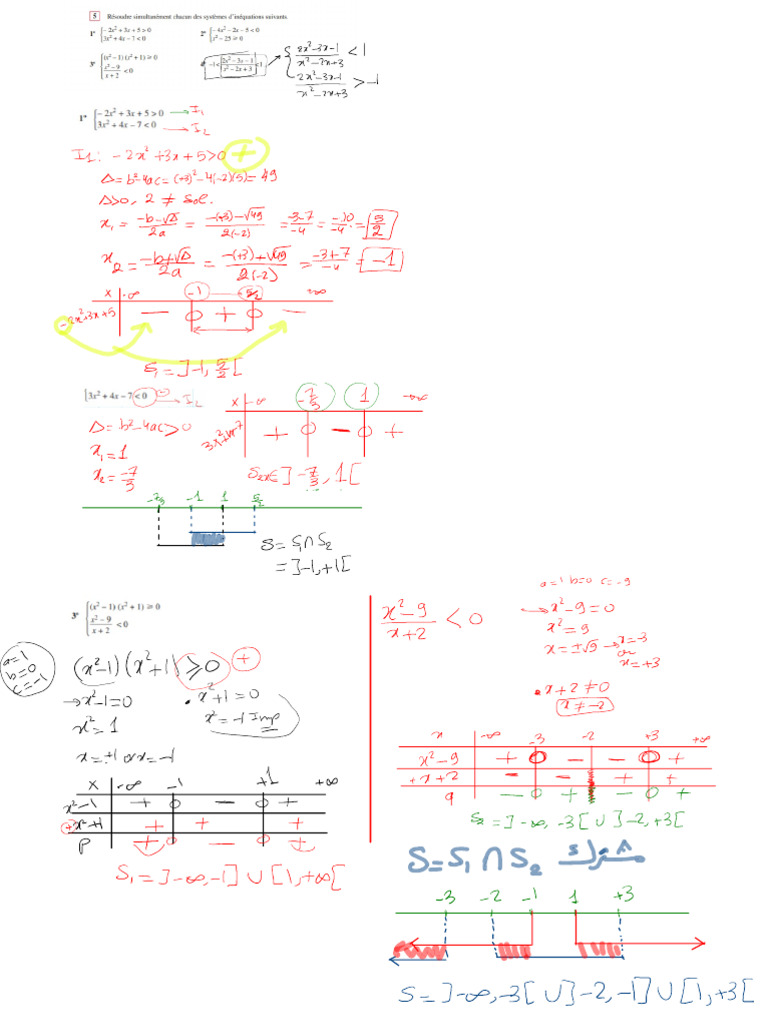 5 Résoudre simultanément chacun des systèmes d'inéquations suivants.
1° { - 2x² + 3x + 5 > 0
3x² + 4x - 7 < 0
2° { - 4x² - 2x - 5 < 0
x² - 25 ≥ 0
3° { (x² - 1) (x² + 1) ≥ 0
x² - 9 / x + 2 < 0
-1 < 2x² - 3x - 1 / x² - 2x + 3 < 1
→ { 2x²-3x-1 / x²-2x+3 < 1
2x²-3x-1 / x²-2x+3 > -1
1° { - 2x² + 3x + 5 > 0 → I₁
3x² + 4x - 7 < 0 → I₂
I1: -2x² + 3x + 5 > 0 +
Δ = b²-4ac = (+3)² - 4(-2)(5) = 49
Δ>0, 2 ≠ Sol.
x₁ = -b-√Δ / 2a = -(+3)-√49 / 2(-2) = -3-7 / -4 = -10 / -4 = 5/2
x₂ = -b+√Δ / 2a = -(+3)+√49 / 2(-2) = -3+7 / -4 = -1
x -∞ -1 5/2 +∞
-2x²+3x+5 - 0 + 0 -
S₁ = ]-1, 5/2[
3x² + 4x - 7 < 0 (-) → I₂
Δ = b²-4ac > 0
x₁ = 1
x₂ = -7/3
x -∞ -7/3 1 +∞
3x²+4x-7 + 0 - 0 +
S₂ x∈ ]-7/3, 1[
-7/3 -1 1 5/2
S = S₁ ∩ S₂
= ]-1, +1[
3° { (x² - 1) (x² + 1) ≥ 0
x² - 9 / x + 2 < 0
a=1
b=0
c=-1
(x²-1)(x²+1) ≥ 0 +
→ x²-1=0
x²=1
x=+1 or x=-1
• x²+1=0
x²=-1 Imp
x -∞ -1 +1 +∞
x²-1 + 0 - 0 +
+x²+1 + + +
P + 0 - 0 +
S₁ = ]-∞, -1] ∪ [1, +∞[
x²-9 / x+2 < 0
a=1 b=0 c=-9
→ x²-9=0
x²=9
x=±√9 → x=-3
or
x=+3
• x+2≠0
x≠-2
x -∞ -3 -2 +3 +∞
x²-9 + 0 - - 0 +
+x+2 - - + +
q - 0 + - 0 +
S₂ = ]-∞, -3[ ∪ ]-2, +3[
S = S₁ ∩ S₂
-3 -2 -1 1 +3
S = ]-∞, -3[ ∪ ]-2, -1] ∪ [1, +3[